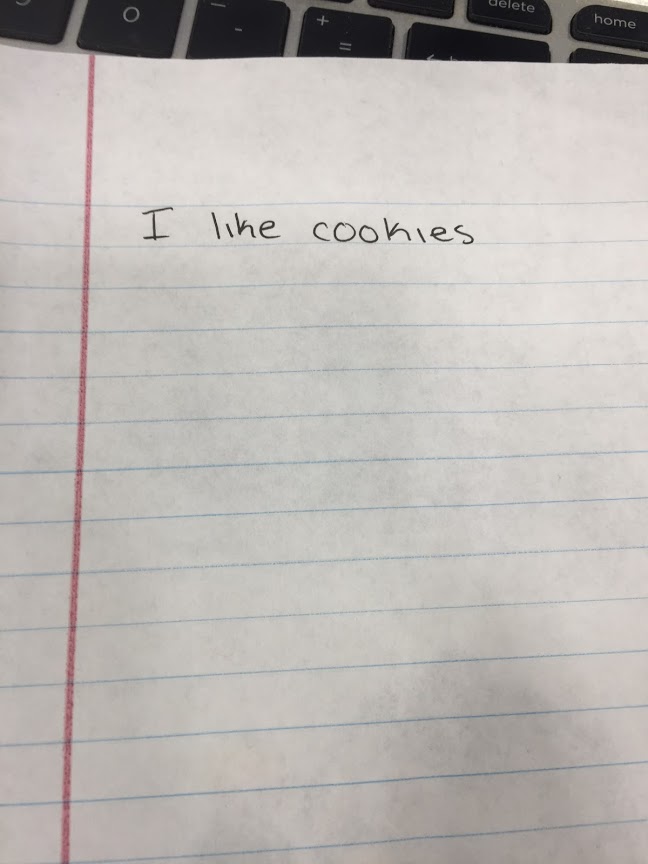 delete
home
O
-
+
=
I like cookies